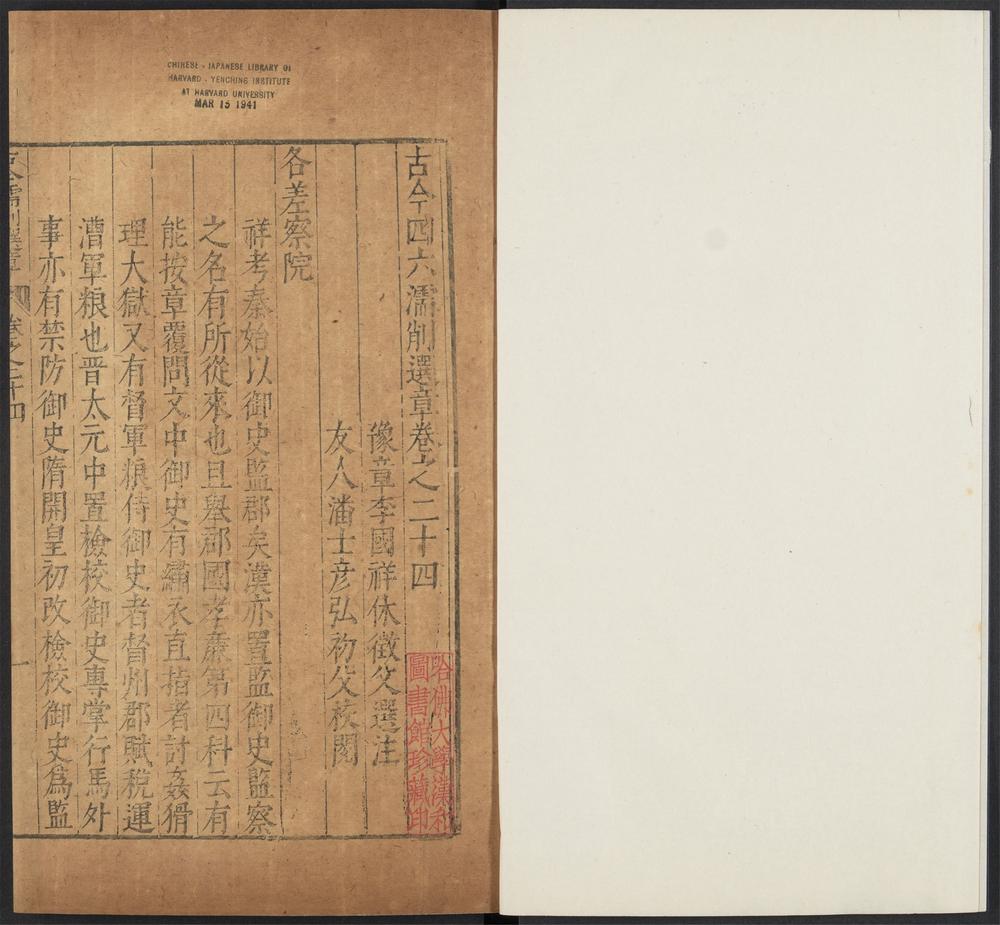 CHINESE - JAPANESE LIBRARY OF
HARVARD - YENCHING INSTITUTE
AT HARVARD UNIVERSITY
MAR 15 1941
古今四六濡削選章卷之二十四
豫章李國祥休徵父選注
友人潘士彦弘初父校閱
各差察院
祥考秦始以御史監郡矣漢亦置監御史監察
之名有所從來也且舉郡國孝廉第四科云有
能按章覆問文中御史有繡衣直指者討姦猾
理大獄又有督軍粮侍御史者督州郡賦稅運
漕軍粮也晋太元中置檢校御史專掌行馬外
事亦有禁防御史隋開皇初改檢校御史爲監
古今濡削選章
卷之二十四
一
哈佛大學漢和
圖書館珍藏印